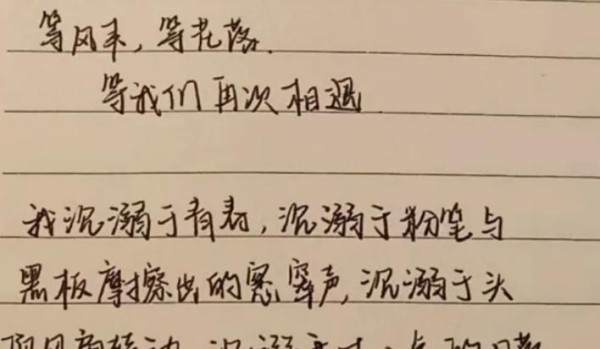 等风来，等花落.
等我们再次相遇
我沉溺于青春，沉溺于粉笔与
黑板摩擦出的窸窣声，沉溺于头
风扇转动，沉溺于